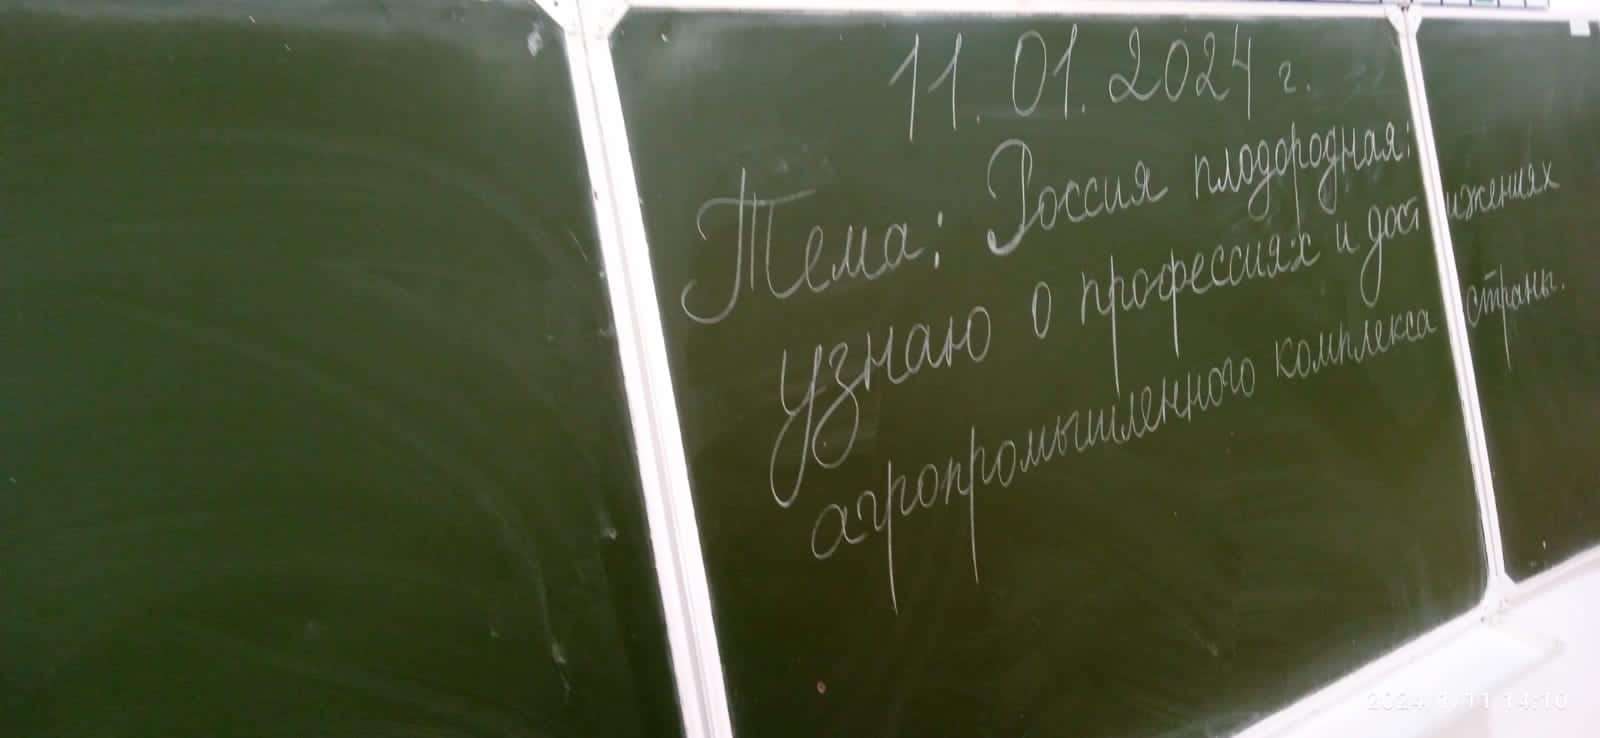 11.01.2024 г.
Тема: Россия плодородная:
узнаю о профессиях и достижениях
агропромышленного комплекса страны.
2024/1/11 14:10